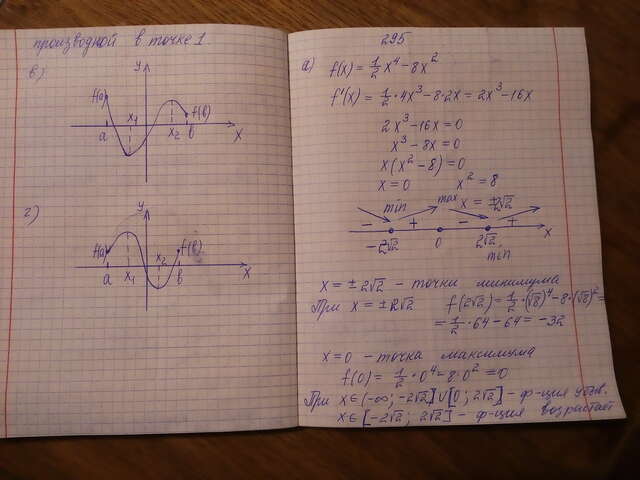 производной в точке 1
в)
y
f(a)
x₁
f(b)
a
x₂
b
x
г)
y
f(a)
x₂
f(b)
a
x₁
b
x
295
а) f(x) = 1/2 x⁴ - 8x²
f'(x) = 1/2 · 4x³ - 8 · 2x = 2x³ - 16x
2x³ - 16x = 0
x³ - 8x = 0
x(x² - 8) = 0
x = 0 x² = 8
x = ±2√2
min max
- + - +
-2√2 0 2√2 x
min
x = ±2√2 - точки минимума
При x = ±2√2 f(2√2) = 1/2 · (√8)⁴ - 8 · (√8)² =
= 1/2 · 64 - 64 = -32
x = 0 - точка максимума
f(0) = 1/2 · 0⁴ - 8 · 0² = 0
При x ∈ (-∞; -2√2] ∪ [0; 2√2] - ф-ция убыв.
x ∈ [-2√2; 2√2] - ф-ция возрастает